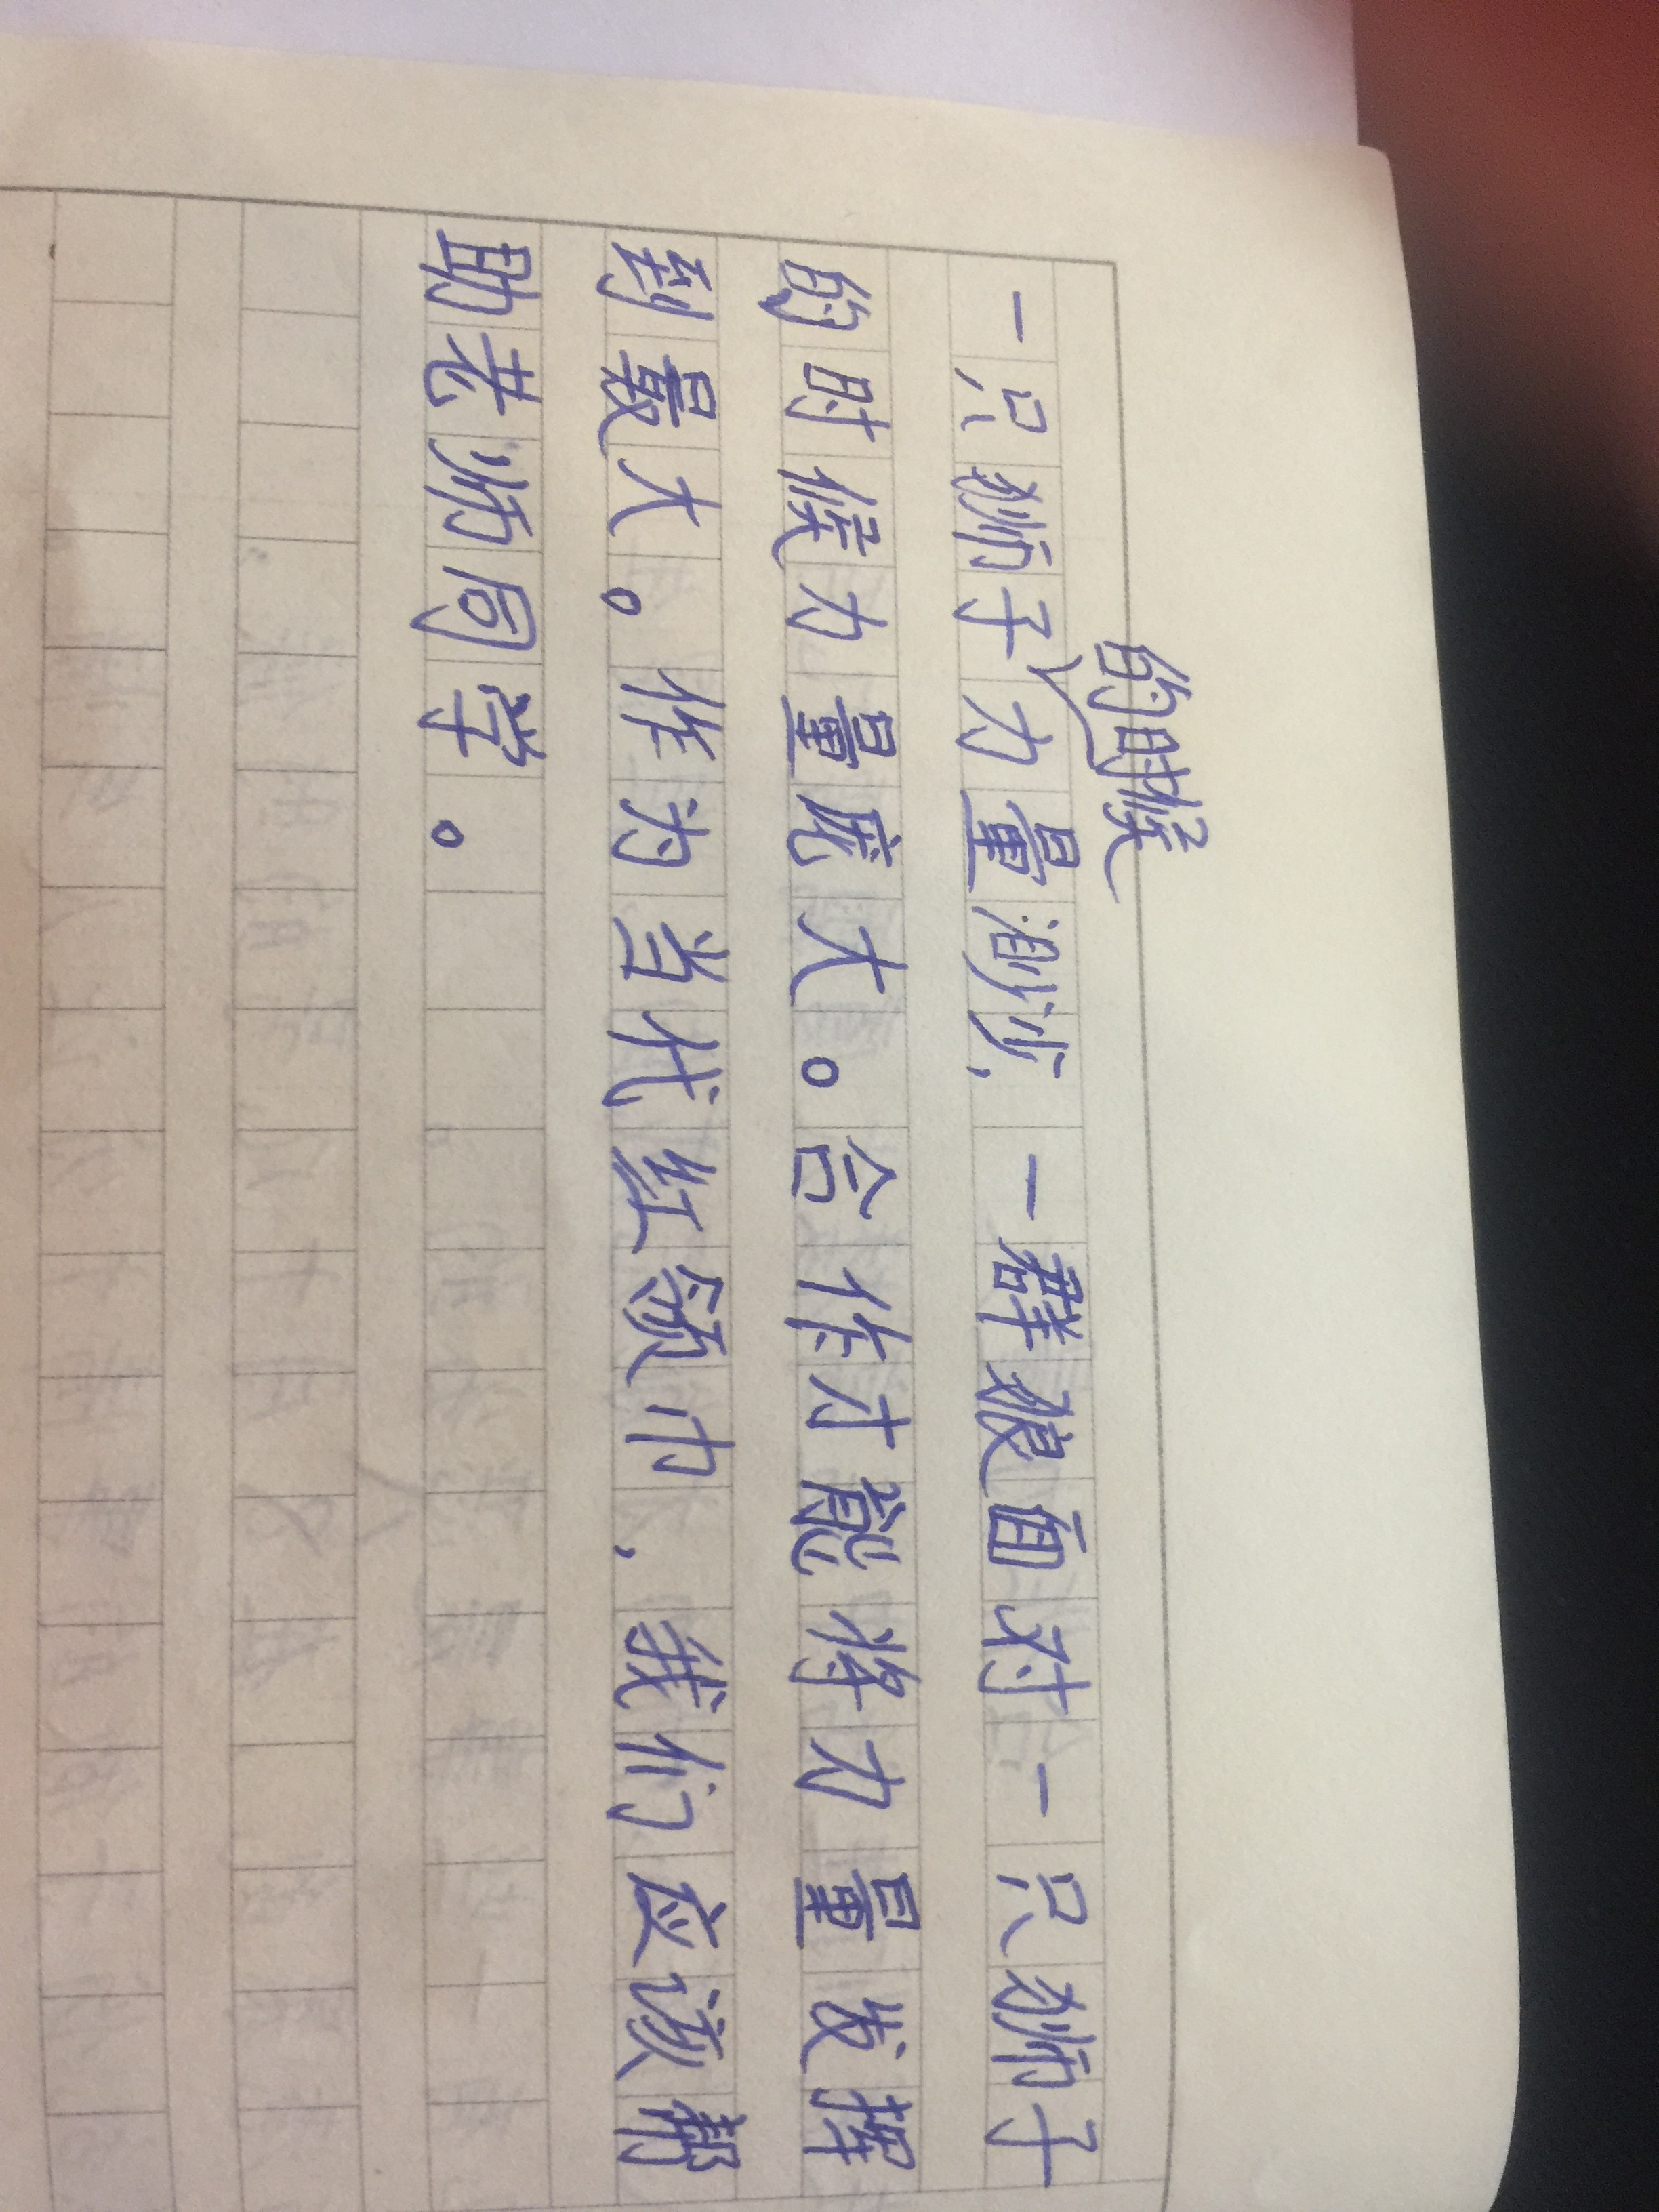 的时候
一只狮子力量渺少，一群狼面对一只狮子
的时候力量庞大。合作才能将力量发挥
到最大。作为当代红领巾，我们应该帮
助老师同学。